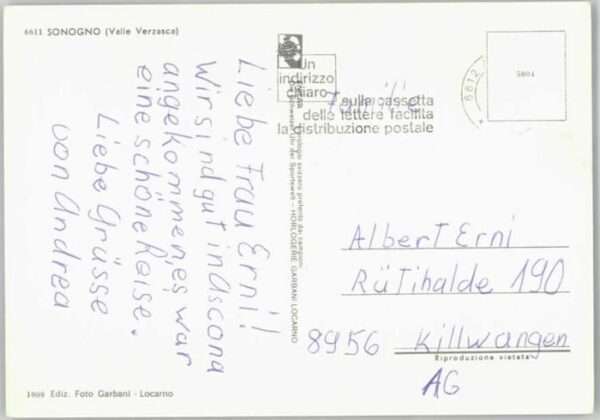 6611 SONOGNO (Valle Verzasca)
Liebe Frau Erni!
Wir sind gut in Ascona
angekommen, es war
eine schöne Reise.
Liebe Grüsse
von Andrea
1909 Ediz. Foto Garbani - Locarno
Un
indirizzo
chiaro
sulla cassetta
delle lettere facilita
la distribuzione postale
6612
5804
HORLOGERIE GARBANI LOCARNO
Familie
Albert Erni
Rütihalde 190
8956 Killwangen
Riproduzione vietata
AG